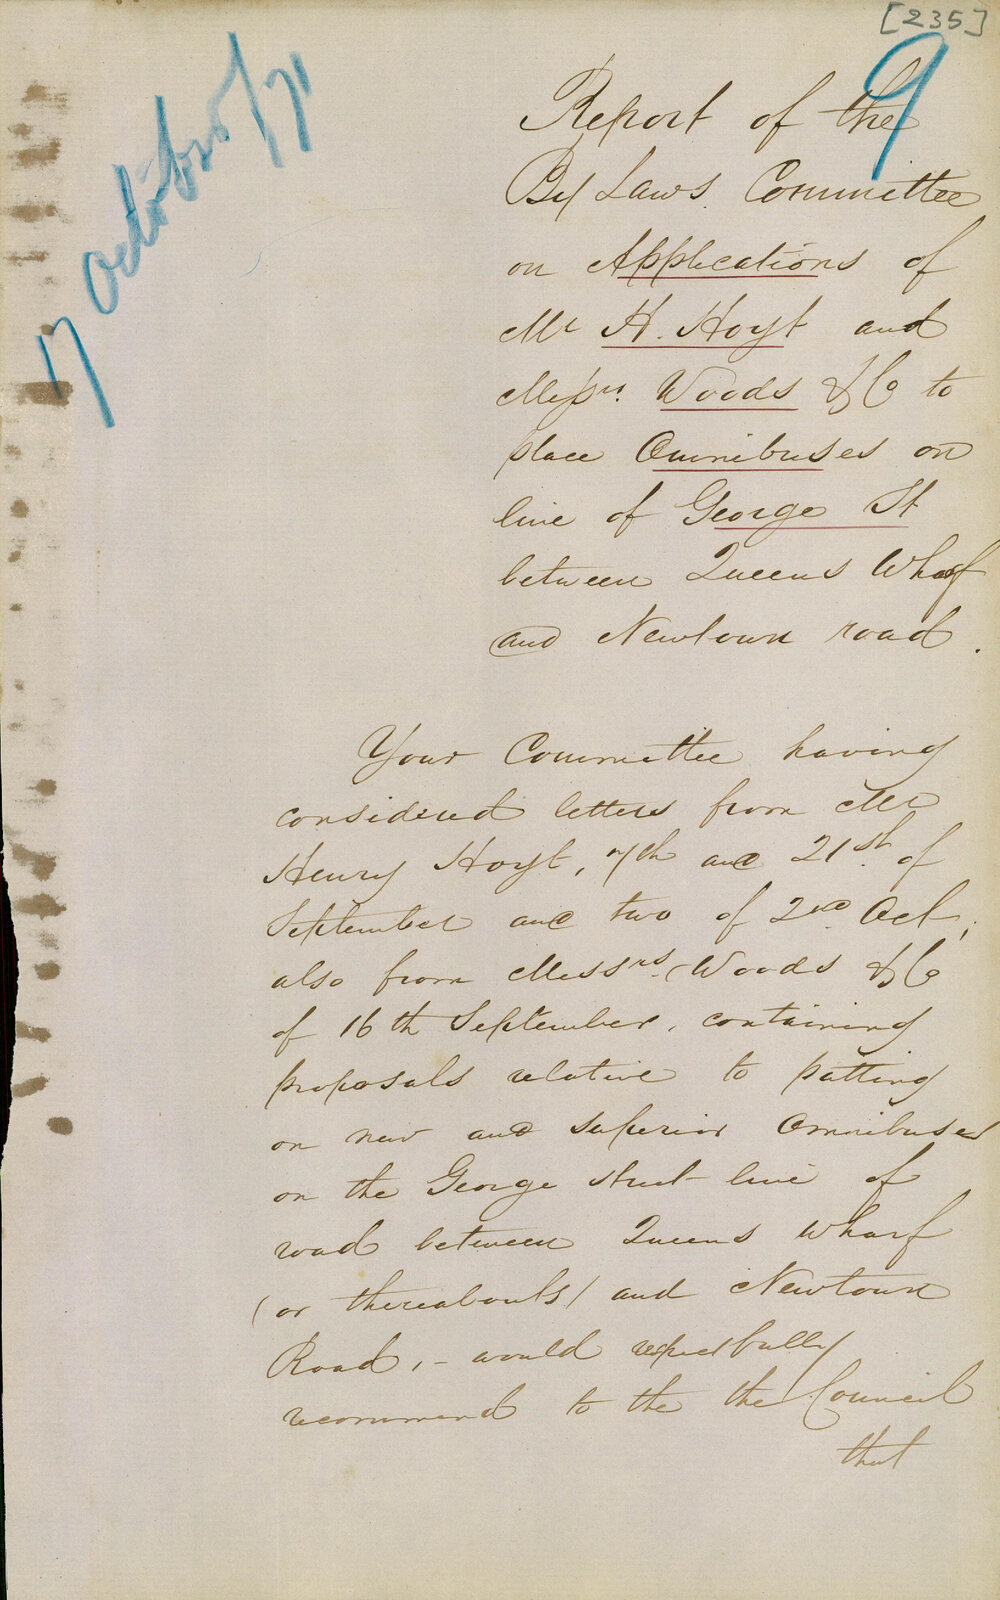 [235]
9
17 October/71
Report of the
By Laws Committee
on Applications of
Mr H. Hoyt and
Messrs. Woods & Co to
place Omnibuses on
line of George St
between Queens Wharf
and Newtown road.
Your Committee having
considered letters from Mr
Henry Hoyt, 7th and 21st of
September and two of 2nd Oct,
also from Messrs. Woods & Co
of 16th September, containing
proposals relative to putting
on new and superior Omnibuses
on the George street line of
road between Queens Wharf
(or thereabouts) and Newtown
Road, - would respectfully
recommend to the the Council
that